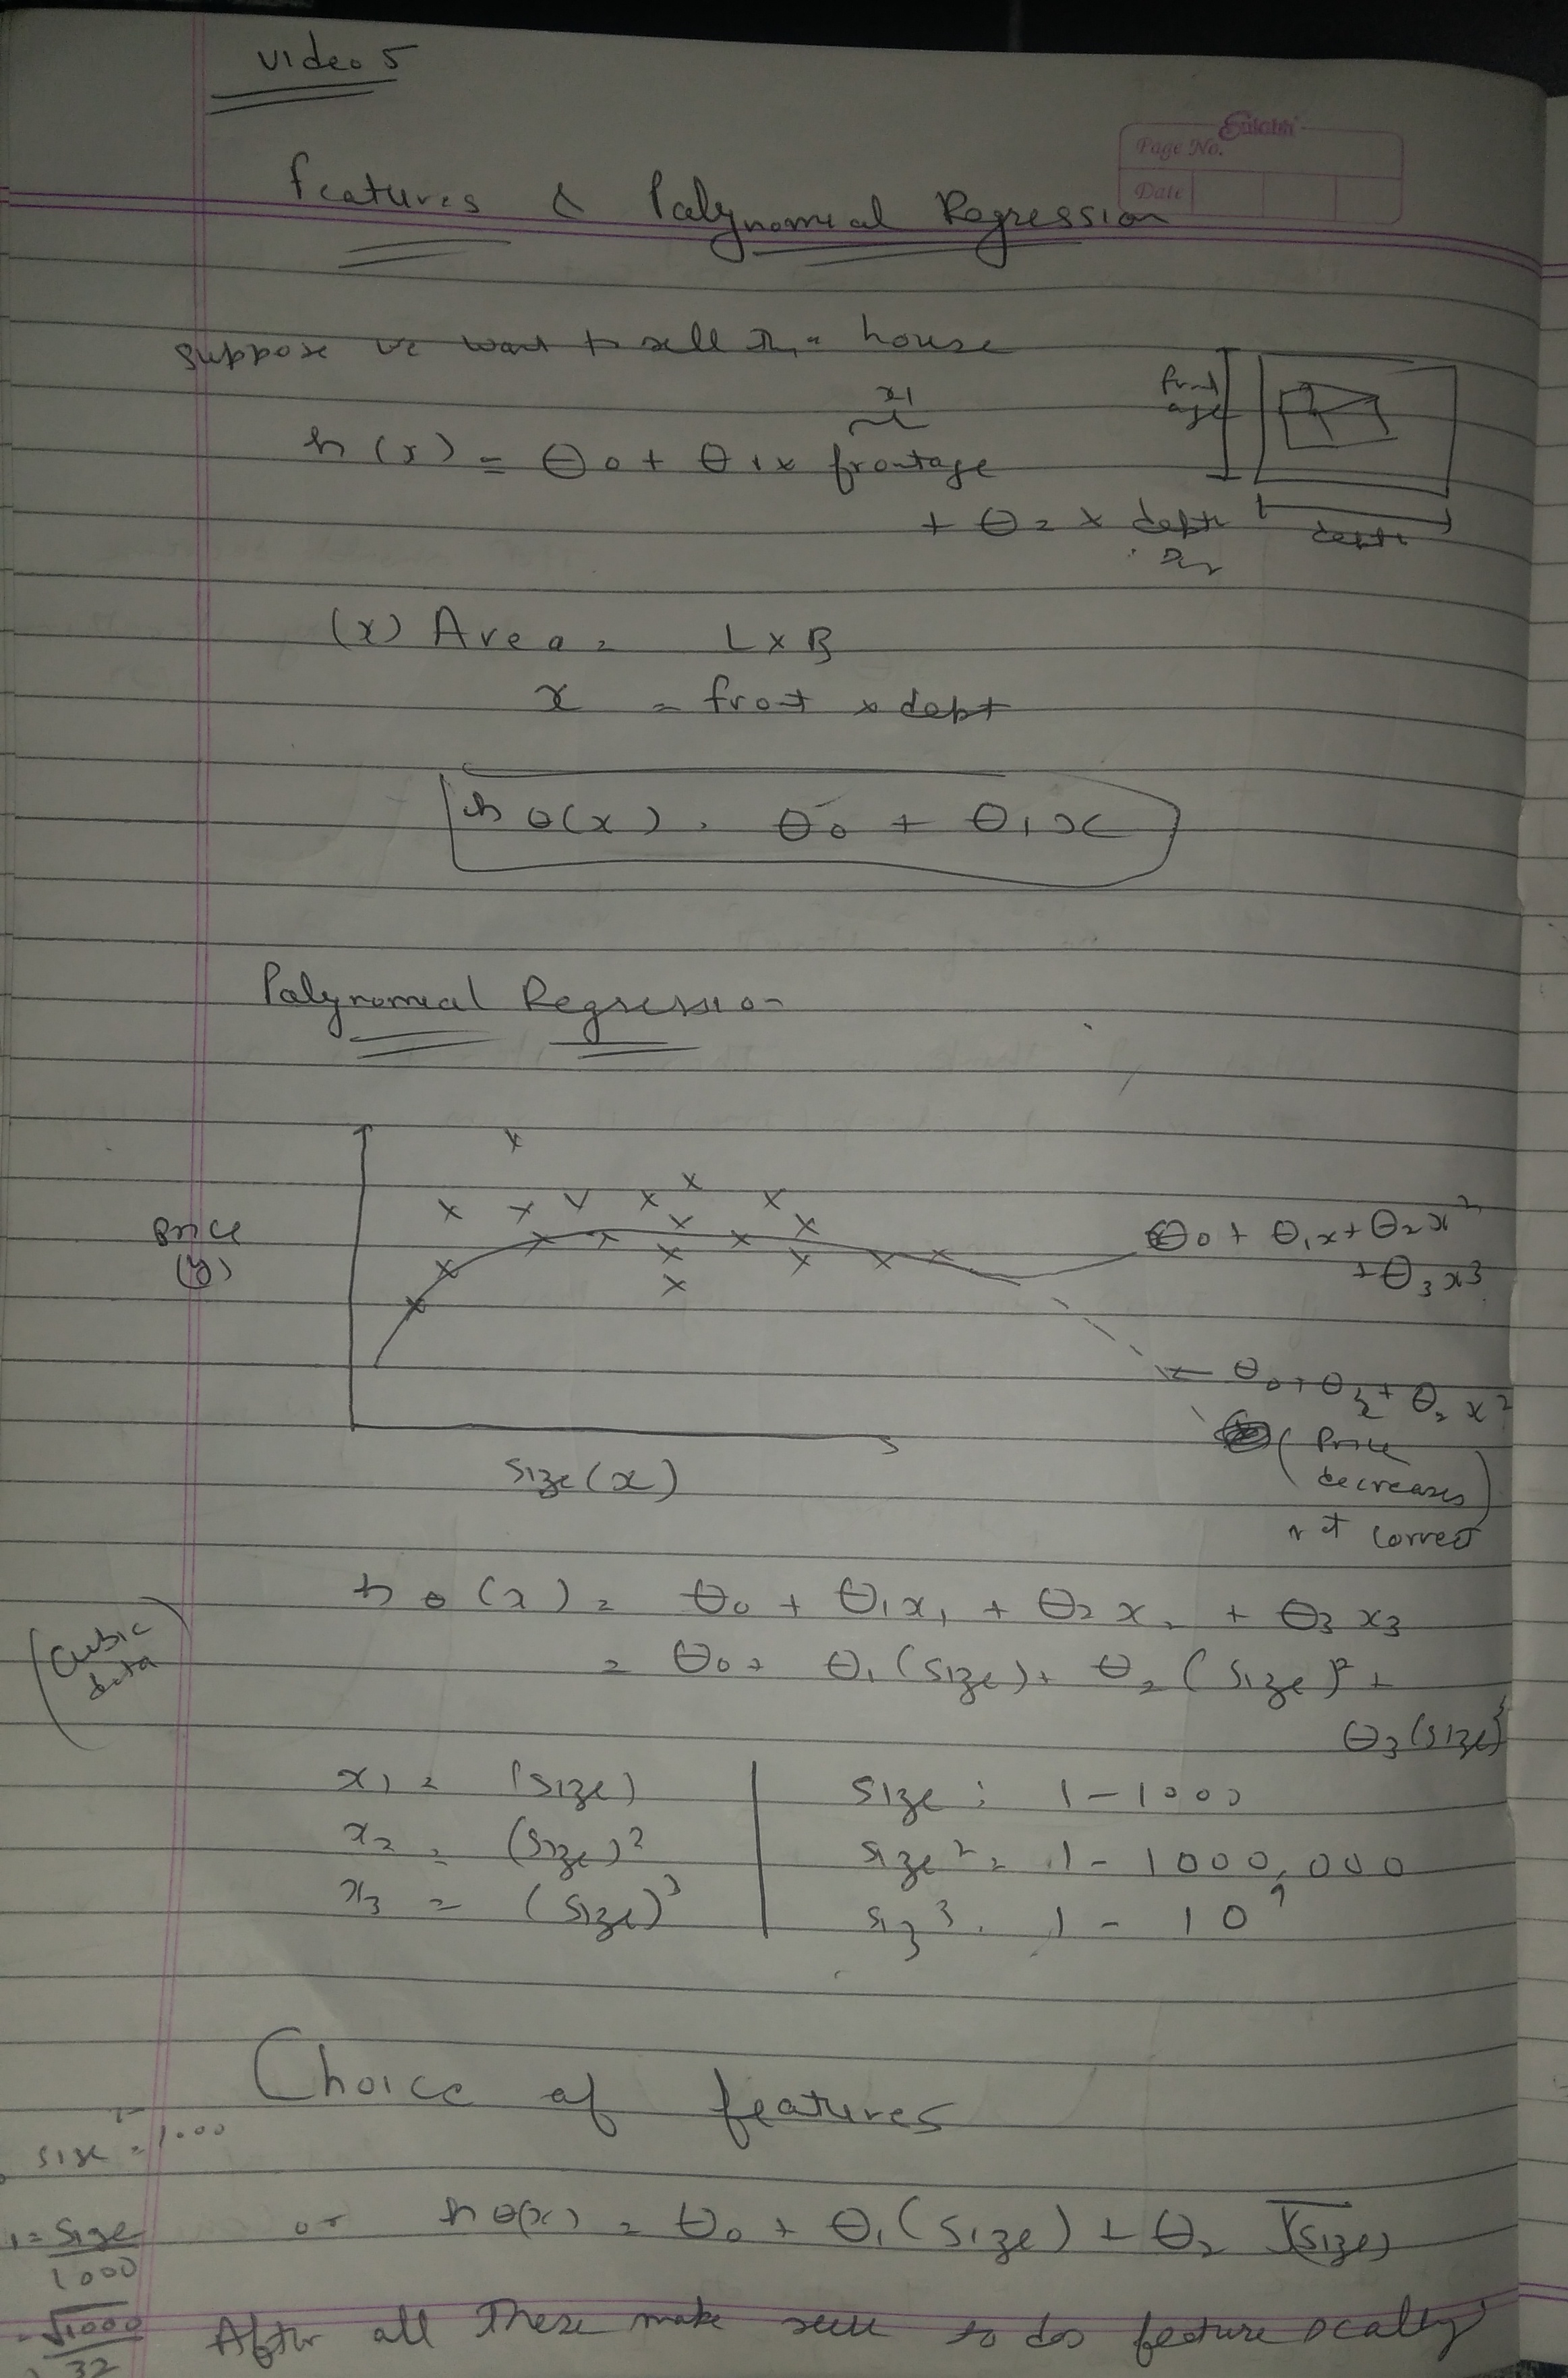 Video 5
Sulabh
Page No.
Date
Features & Polynomial Regression
Suppose we want to sell a house
h(x) = θ0 + θ1 x frontage
x1
+ θ2 x depth
x2
frontage
depth
(x) Area = L x B
x = frot x dept
hθ(x) = θ0 + θ1x
Polynomial Regression
Price
(y)
Size (x)
θ0 + θ1x + θ2x²
+ θ3x³
← θ0 + θ1x + θ2x²
(Price
decreases)
not correct
hθ(x) = θ0 + θ1x1 + θ2x2 + θ3x3
(Cubic
data)
= θ0 + θ1(size) + θ2(size)² +
θ3(size)³
x1 = (size)
x2 = (size)²
x3 = (size)³
size : 1 - 1000
size² = 1 - 1000,000
siz³ = 1 - 10⁹
Choice of features
size = 1-1000
1 = size/1000
√1000/32
or hθ(x) = θ0 + θ1(size) + θ2 √(size)
After all These make sure to do feature scaling